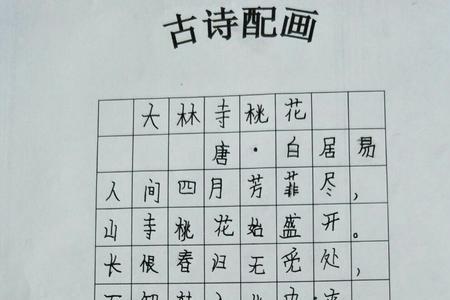 古诗配画
大林寺桃花
唐·白居易
人间四月芳菲尽，
山寺桃花始盛开。
长恨春归无觅处，